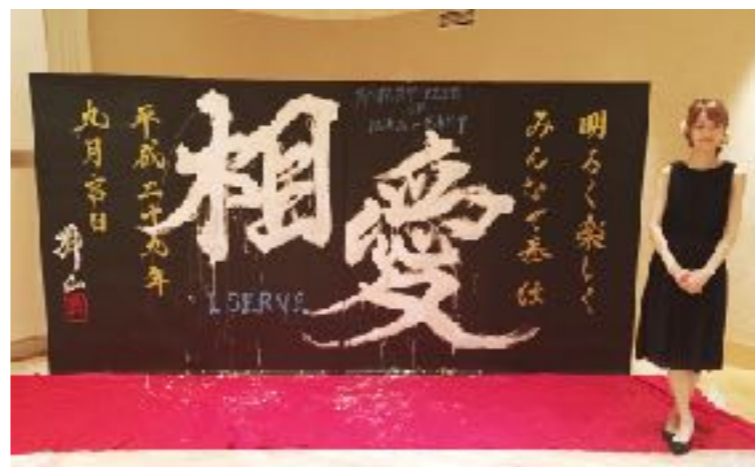 明るく楽しく
みんなで奉仕
相愛
I SERVE
平成二十九年
九月 日